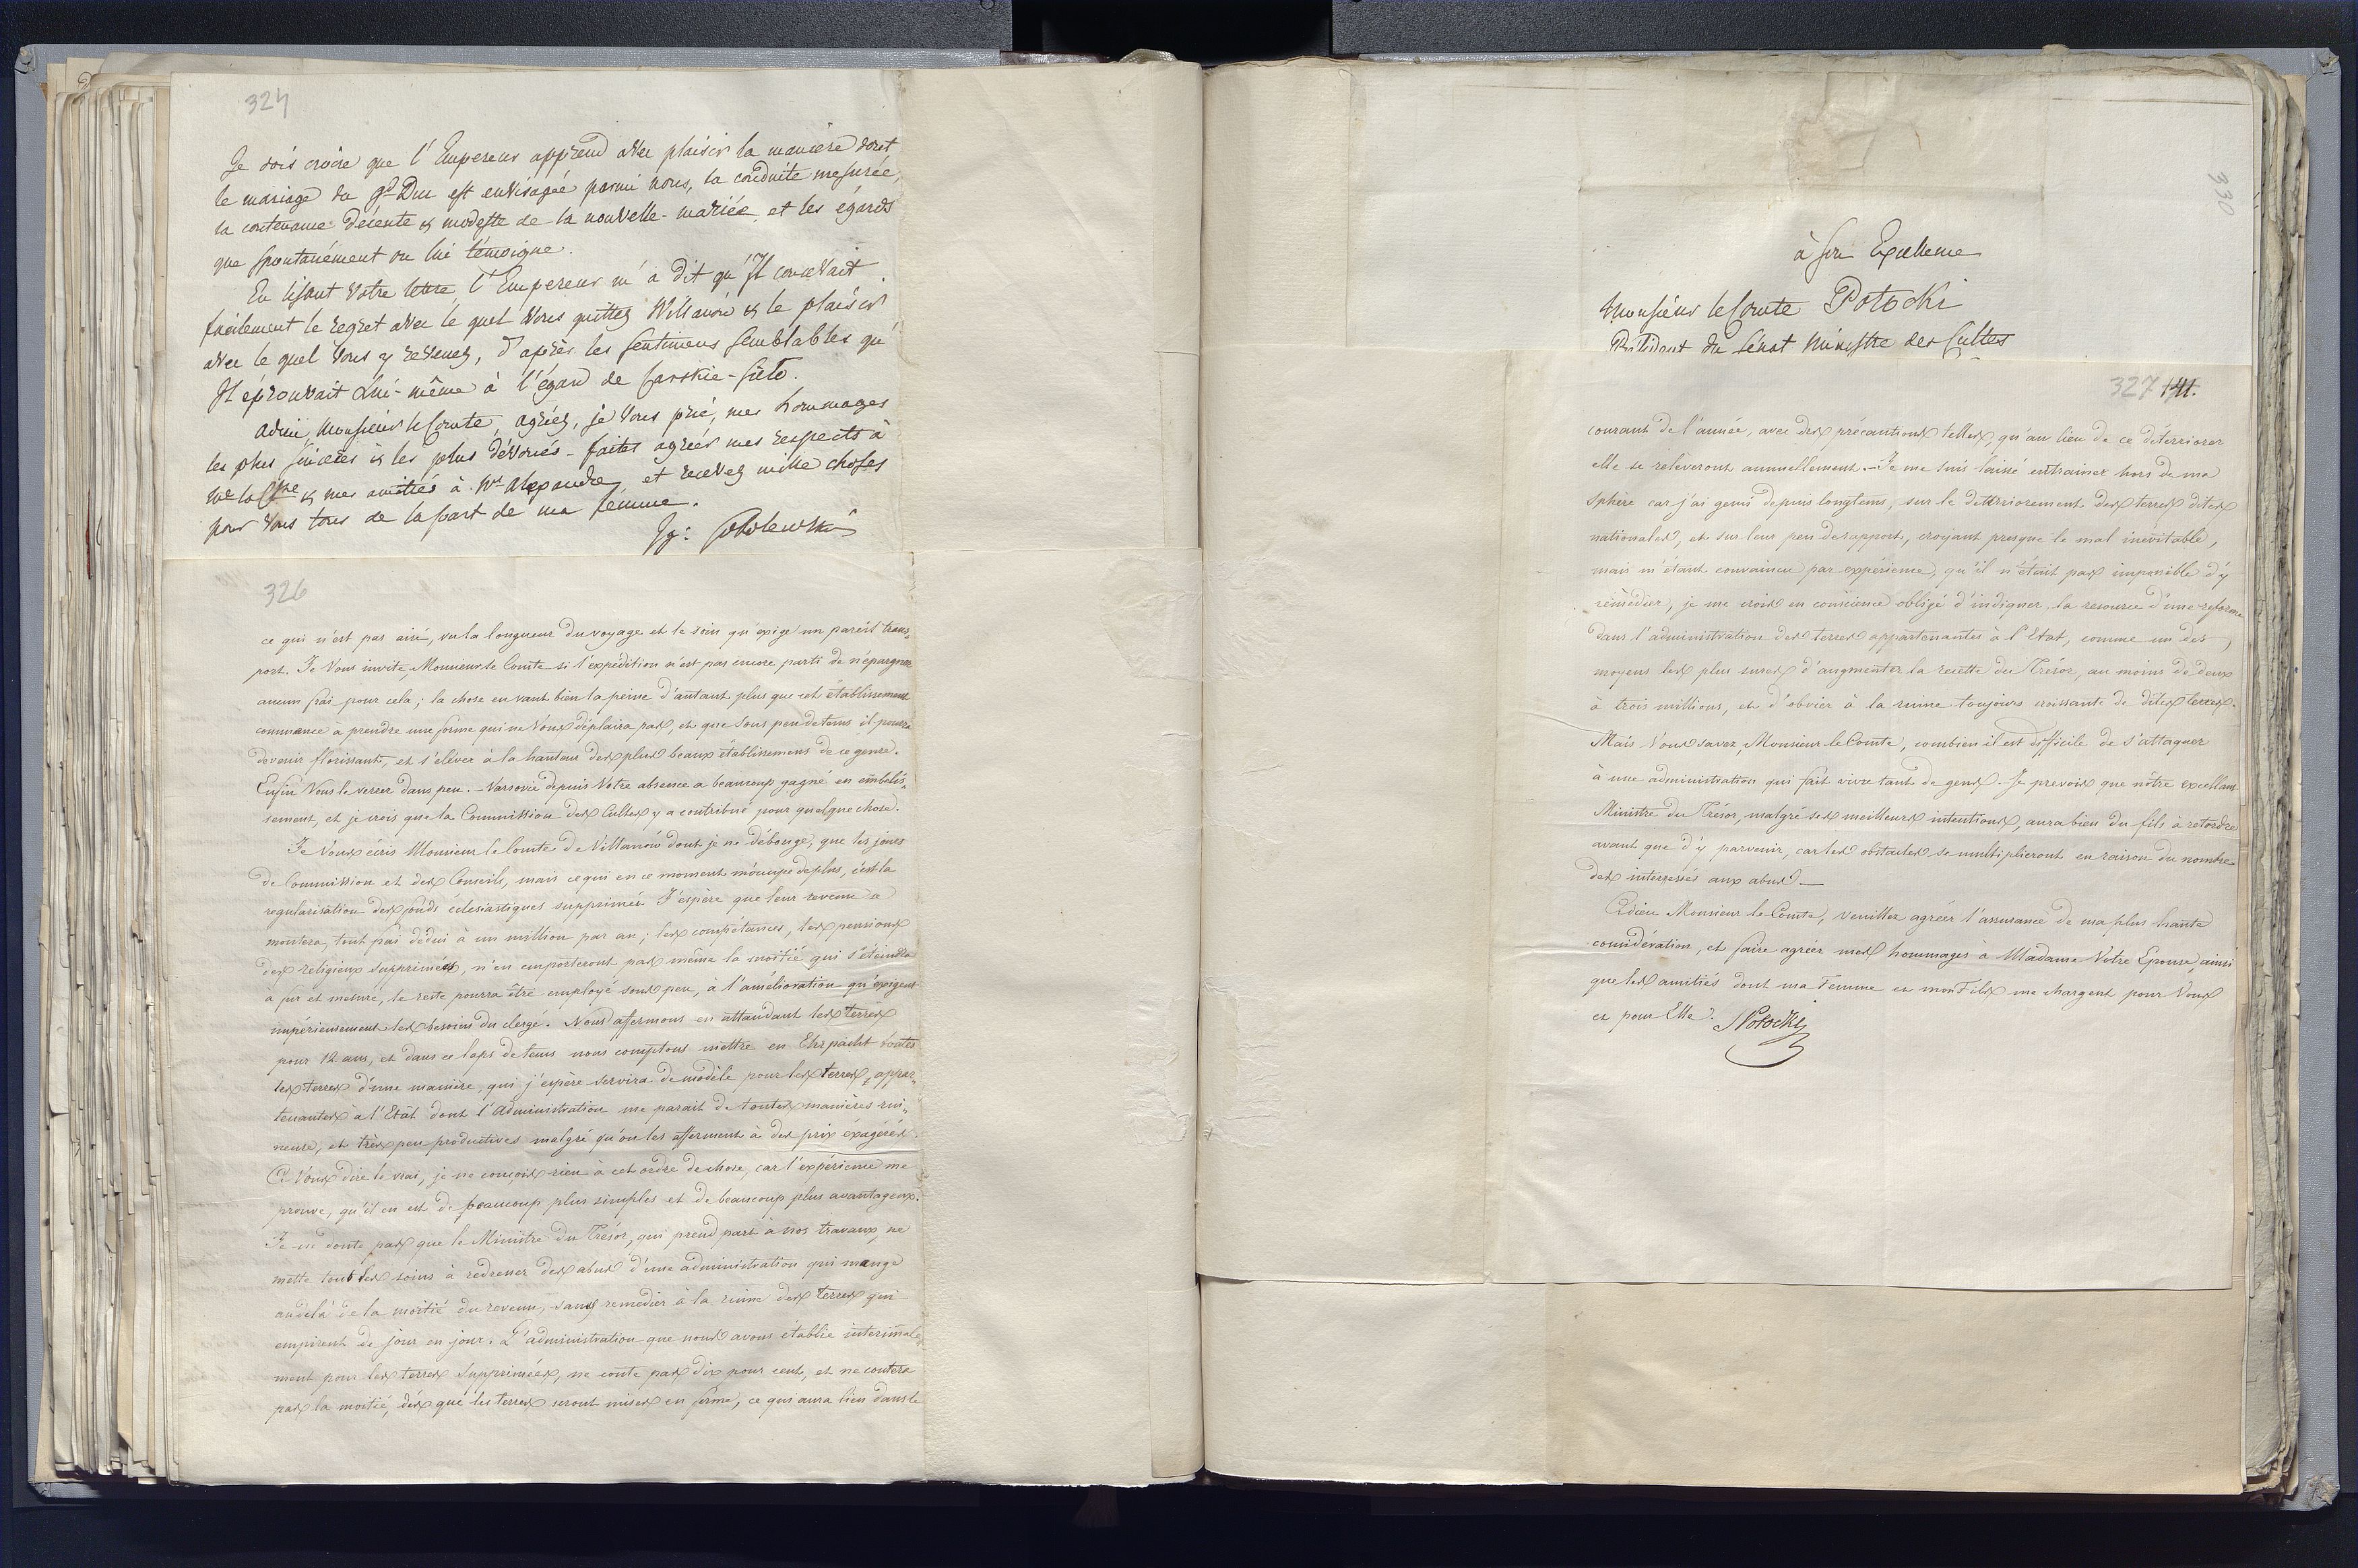 324
Je dois croire que l'Empereur apprend avec plaisir la manière dont
le mariage du gd Duc est envisagée parmi nous, la conduite mesurée,
la contenance decente & modeste de la nouvelle-mariée, et les égards
que spontanément on lui témoigne.
En lisant Votre lettre l'Empereur m'a dit qu'Il concevait
facilement le regret avec le quel Vous quittez Willanow & le plaisir
avec le quel Vous y revenez, d'après les sentimens semblables qu'
Il éprouvait Lui-même à l'égard de Carskie-Sielo.
Adieu, Monsieur le Comte, agréez, je Vous prie, mes hommages
les plus sincères & les plus dévoués - faites agréer mes respects à
Me la Ctsse & mes amitiés à Mr Alexandre, et recevez mille choses
pour Vous tous de la part de ma femme.
Ig: Sobolewski
326
ce qui n'est pas aisé, vu la longueur du voyage et le soin qu'exige un pareil trans„
port. Je Vous invite, Monsieur le Comte si l'expédition n'est pas encore parti de n'épargner
aucun frais pour cela; la chose en vaut bien la peine d'autant plus que cet établissement
commence à prendre une forme qui ne Vous déplaira pas, et que sous peu de tems il pourra
devenir florissant, et s'éléver à la hauteur des plus beaux établissemens de ce genre.
Enfin Vous le verrez dans peu. - Varsovie depuis Votre absence a beaucoup gagné en embelis„
sement, et je crois que la Commission des Cultes y a contribué pour quelque chose.
Je Vous écris Monsieur le Comte de Villanów dont je ne débouge, que les jours
de Commission et des Conseils, mais ce qui en ce moment m'ocupe de plus, c'est la
regularisation des fonds éclesiastiques supprimés J'éspère que leur revenu se
montera, tout frai dedui à un million par an; les compétances, les pensions
des religieux supprimés, n'en emporteront pas même la moitié qui s'éteindra
à fur et mesure, le reste pourra être employé sous peu, à l'amélioration qu'éxigent
impérieusement les besoins du clergé. Nous affermons en attandant les terres
pour 12 ans, et dans ce laps de tems nous comptons mettre en Ehrpacht toutes
les terres d'une manière, qui j'espère servira de modèle pour les terres, appar„
tenantes à l'Etât dont l'Administration me parait de toutes manières rui„
neuse, et très peu productives malgré qu'on les afferment à des prix éxagérés.
A Vous dire le vrai, je ne conçois rien à cet ordre de chose, car l'expérience me
prouve, qu'il en est de beaucoup plus simples et de beaucoup plus avantageux.
Je ne doute pas que le Ministre du Trésor, qui prend part à nos travaux, ne
mette tous les soins à redresser des abus d'une administration qui mange
au delà de la moitié du revenu, sans remedier à la ruine des terres qui
empirent de jour en jour. L'administration que nous avons établie interimale„
ment pour les terres supprimées, ne coute pas dix pour cent, et ne coutera
pas la moitié, dès que les terres seront mises en ferme, ce qui aura lieu dans le
330
à Son Excellence
Monsieur le Comte Potocki
Président du Sénat Ministre des Cultes
327 141.
courant de l'année, avec des précautions telles, qu'au lieu de ce déterriorer
elle se releveront annuellement. - Je me suis laissé entrainer hors de ma
Sphère car j'ai gemis depuis longtems, sur le deterriorement des terres dites
nationales, et sur leur peu de rapport, croyant presque le mal inévitable,
mais m'étant convaincu par expérience, qu'il n'était pas impossible d'y
rémédier, je me crois en conscience obligé d'indiquer, la resource d'une reforme
dans l'administration des terres appartenantes à l'Etat, comme un des
moyens les plus sures d'augmenter la recette du Trésor, au moins de deux
à trois millions, et d'obvier à la ruine toujours croissante de dites terres.
Mais Vous savez, Monsieur le Comte, combien il est difficile de s'attaquer
à une administration qui fait vivre tant de gens. - Je prevois que nôtre excellant
Ministre du Trésor, malgré ses meilleurs intentions, aura bien du fils à retordre
avant que d'y parvenir, car les obstacles se multiplieront en raison du nombre
des interressés aux abus —
Adieu Monsieur le Comte, veuillez agréer l'assurance de ma plus haute
considération, et faire agréer mes hommages à Madame Votre Epouse, ainsi
que les amitiés dont ma Femme et mon Fils me chargent pour Vous
et pour Elle. SPotocki